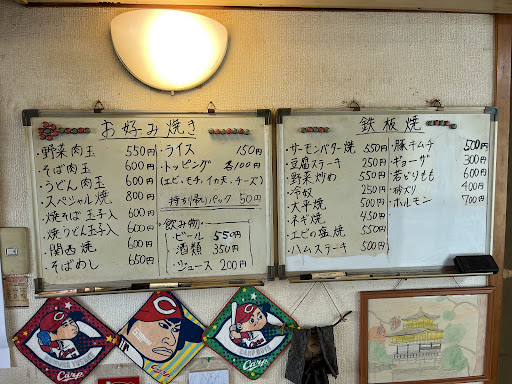 お好み焼き
・野菜肉玉 550円
・そば肉玉 600円
・うどん肉玉 600円
・スペシャル焼 800円
・焼そば玉子入 600円
・焼うどん玉子入 600円
・関西焼 600円
・そばめし 650円
・ライス 150円
・トッピング 各100円
(エビ、モチ、イカ天、チーズ)
持ち帰りパック 50円
・飲み物
ビール 550円
酒類 350円
ジュース 200円
鉄板焼
・サーモンバター焼 550円
・豆腐ステーキ 250円
・野菜炒め 550円
・冷奴 250円
・大平焼 500円
・ネギ焼 450円
・エビの塩焼 550円
・ハムステーキ 500円
・豚キムチ 500円
・ギョーザ 300円
・若どりもも 600円
・砂ズリ 400円
・ホルモン 700円
Carp
Carp
Carp